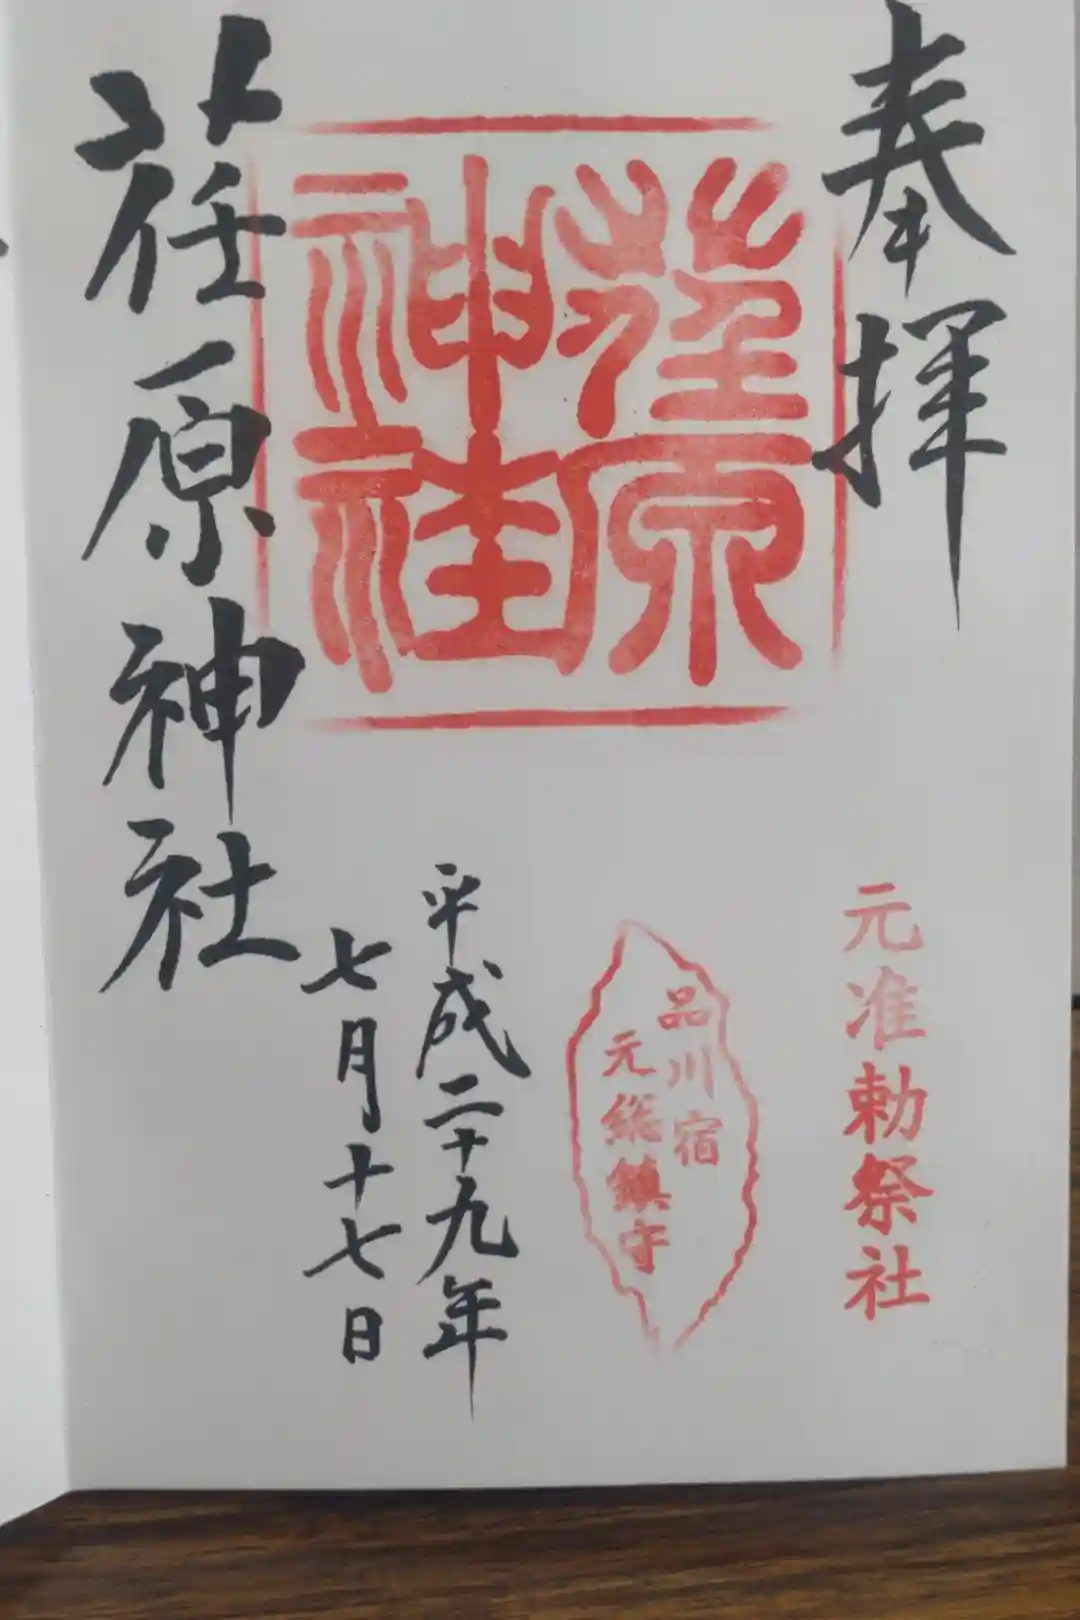 奉拝
元准勅祭社
荏原神社
品川宿
元総鎮守
平成二十九年
七月十七日
荏原神社